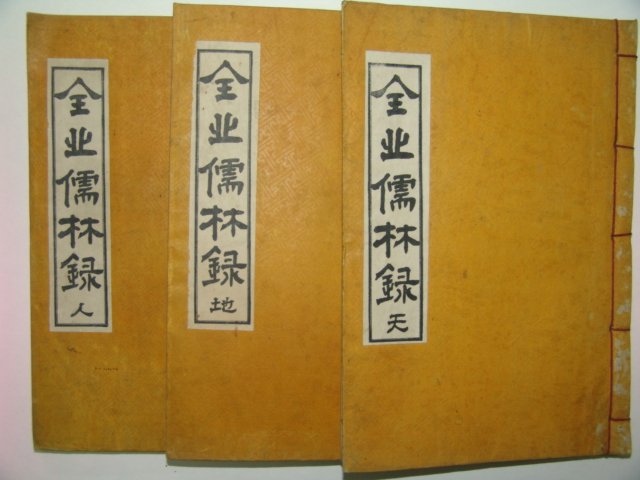 全北儒林録 天
全北儒林録 地
全北儒林録 人